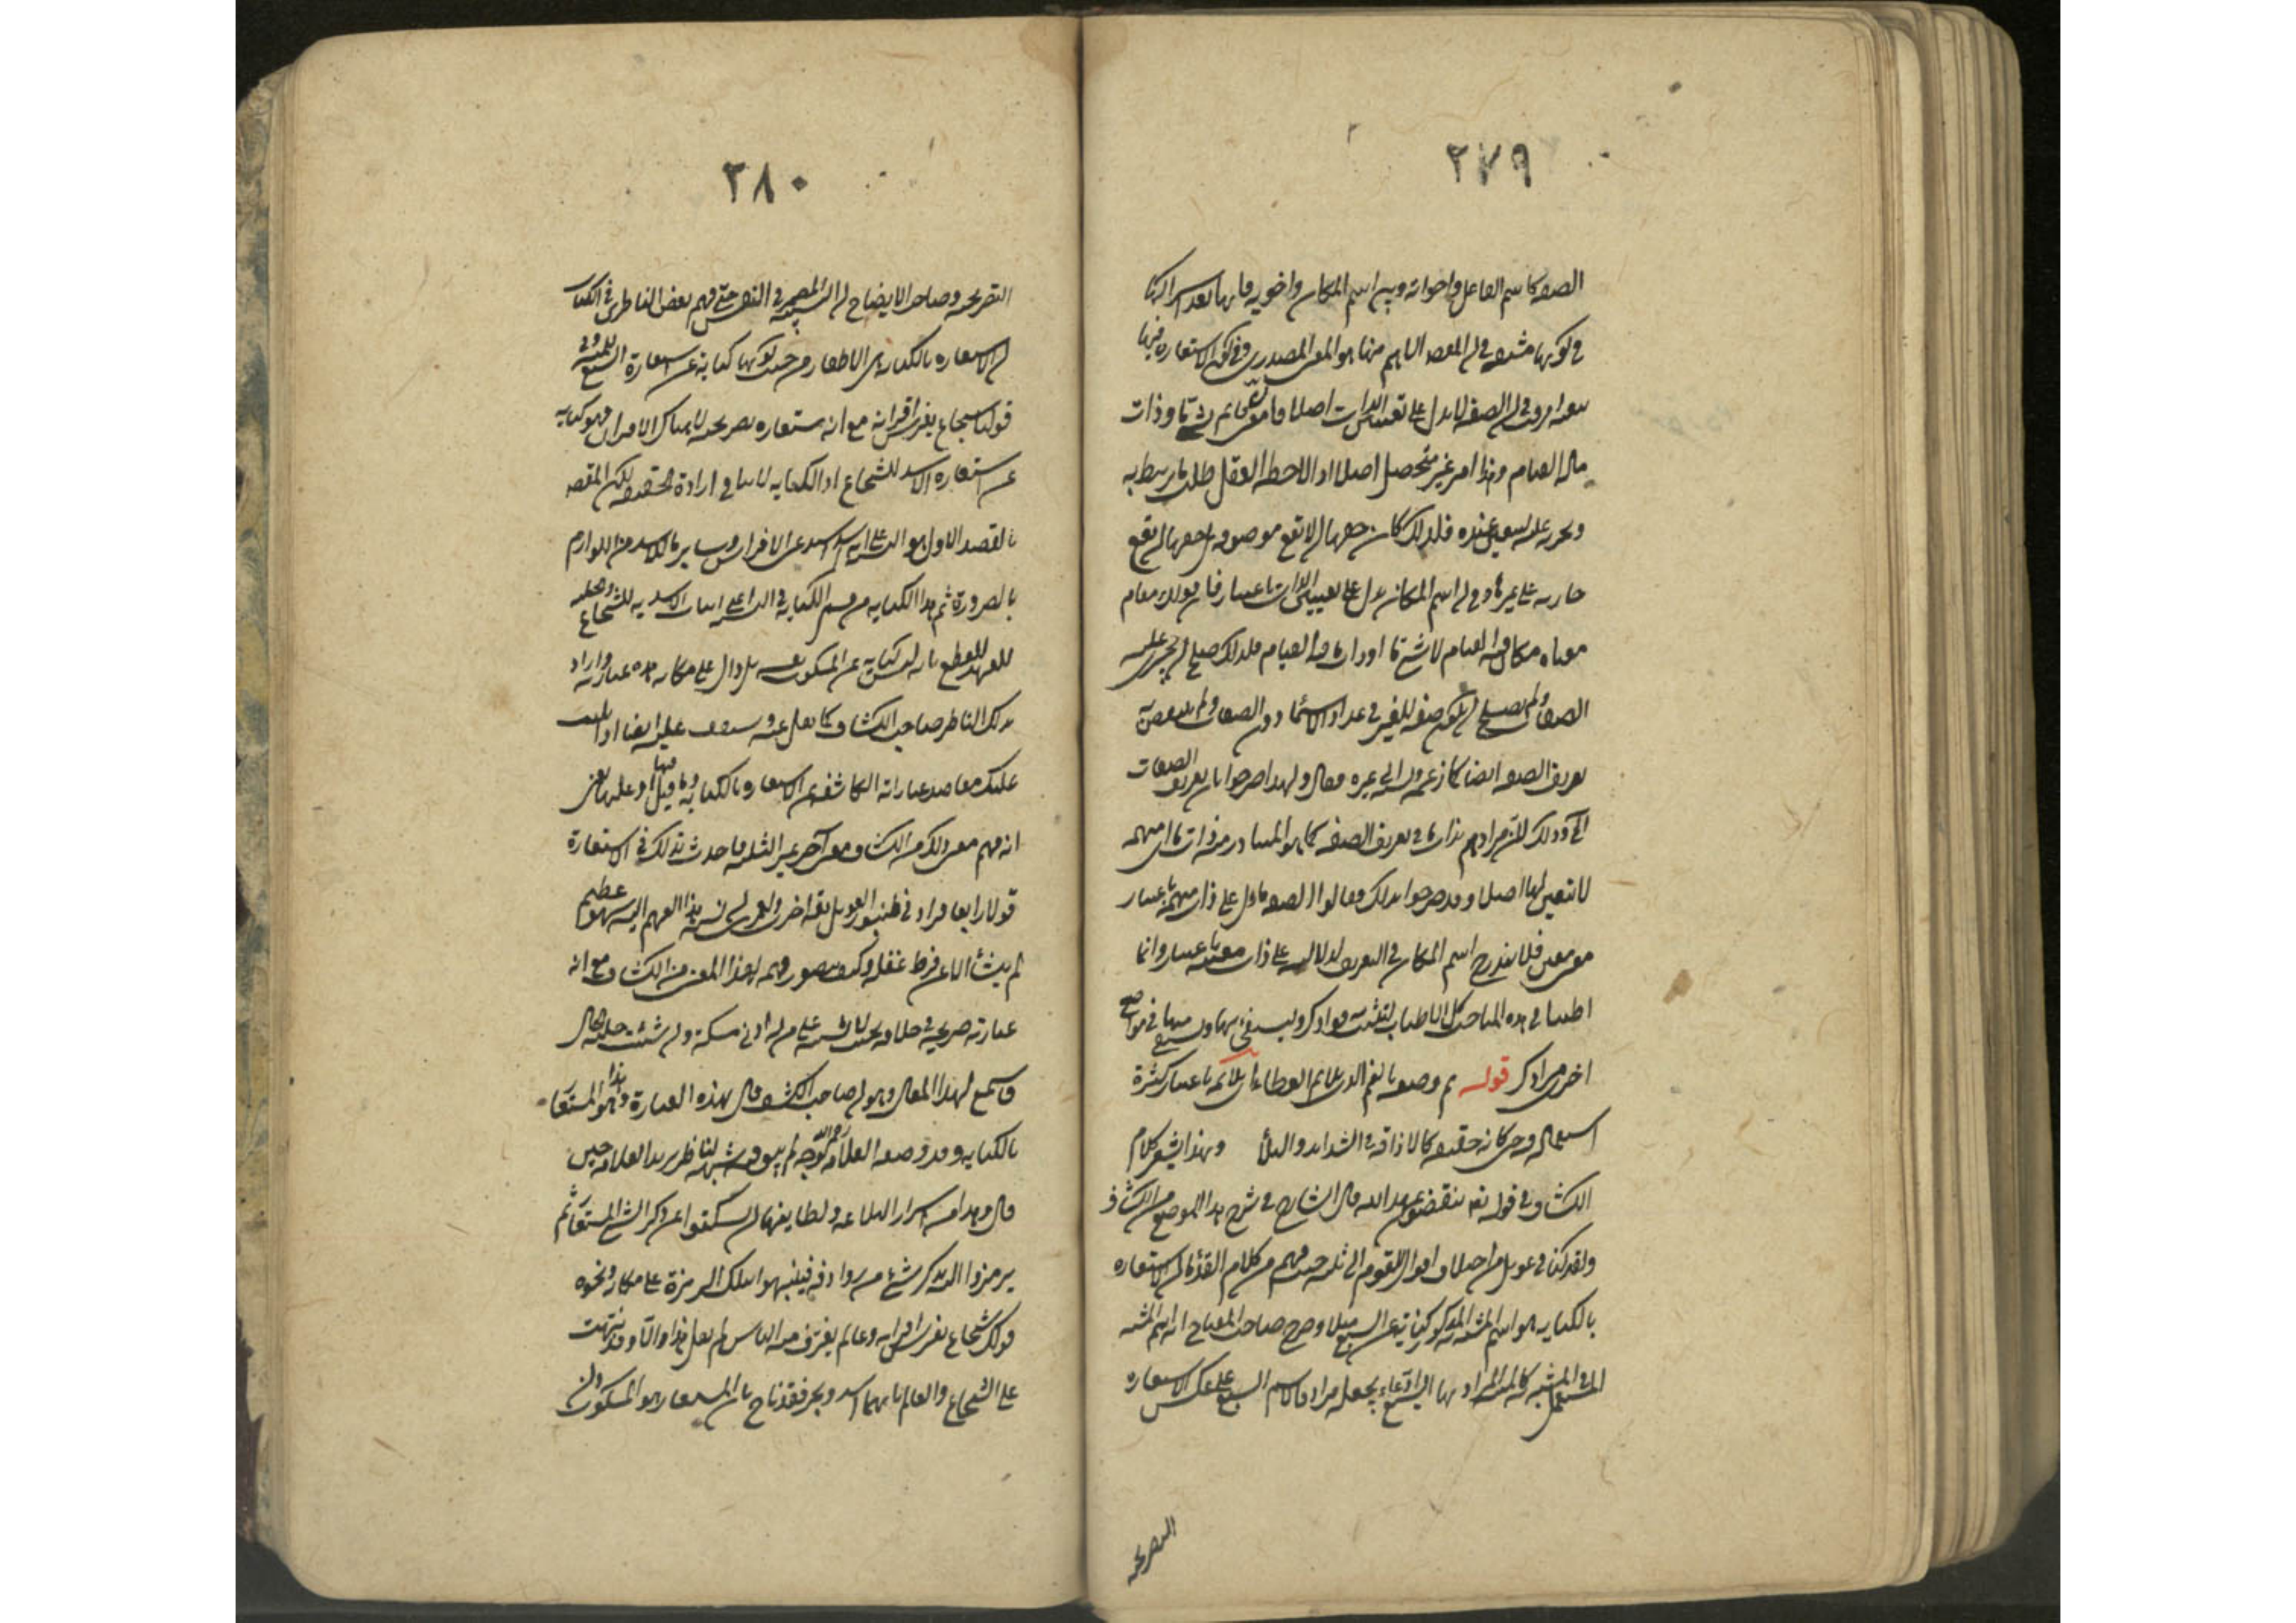 ٢٧٩
الصفة كاسم الفاعل واخواته وبين اسم المكان واخويه فانها بعد اشتراكها
في كونها مشتقة في ان المقصد الاهم منها هو المعنى المصدري وفي كون الاستعارة فيها
تبعية افترقت في ان الصفة لا تدل على تعيين الذات اصلا فان معنى قائم شيء ما او ذات
ما له القيام وهذا امر غير متحصل اصلا اذا لاحظه العقل طلب ما يرتبط به
ويجريه عليه ليتعين عنده فلذلك كان حقها ان لا تقع موصوفة بل حقها ان تقع
جارية على غيرها وفي ان اسم المكان يدل على تعيين الذات باعتبار فان قولك مقام
معناه مكان فيه القيام لا شيء ما او ذات ما فيه القيام فلذلك صلح ان يجري عليه
الصفات ولم يصلح ان يكون صفة للغير في عداد الاسماء دون الصفات
تعريف الصفة ايضا كما زعمه الى غيره فقال ولهذا صرحوا بان تعريف الصفات
وذلك لان مرادهم بذات ما في تعريف الصفة كما هو المتبادر منه ذات ما مبهمة
لا تعين لها اصلا وقد صرحوا بذلك فقالوا الصفة ما دل على ذات مبهمة باعتبار
معنى معين فلا يندرج اسم المكان في التعريف لدلالته على ذات معينة باعتبار وانما
اطنبنا في هذه المباحث كل الاطناب لتثبت فؤادك وليستعين بها في مواضع
اخرى مرادك قوله ثم وصفه بالغمر الذي يلائم العطاء اي يلائمه باعتبار كثرة
استعماله فيه حتى كانه حقيقة كالاذاقة في الشدائد والبلايا وبهذا يشعر كلام
الكشاف في قوله تعالى ينقضون عهد الله قال الشارح في شرح هذا الموضع من الكشاف
ولقد كنا في عويل من اختلاف اقوال القوم الى ثلثة حيث فهم من كلام القدماء ان الاستعارة
بالكناية هو اسم المشبه به المذكور كناية عن السبع مثلا وصرح صاحب المفتاح انه اسم المشبه
المستعمل في المشبه به كالمنية المراد بها السبع ادعاء بجعله مرادفا لاسم السبع على عكس الاستعارة
التصريحية
٢٨٠
التصريحية وصاحب الايضاح انه التشبيه المضمر في النفس حتى فهم بعض الناظرين في الكتاب
ان الاستعارة بالكناية هي الاظفار من حيث كونها كناية عن استعارة السبع للمنية وفي
قولنا شجاع يفترس اقرانه مع انه استعارة تصريحية لاهلاك الاقران فهو كناية
عن استعارة الاسد للشجاع اذ الكناية لا تنافي ارادة الحقيقة لكن المقصد
بالقصد الاول هو التنبيه على انه اسد الافتراس وسائر ما للاسد من اللوازم
بالضرورة ثم هذا الكناية من قسم الكناية في النسبة اعني اثبات الاسدية للشجاع
للقطع بانه ليس كناية عن المسكوت عنه بل دال على مكانه هذه عبارته واراد
بذلك الناظر صاحب الكشف كما نقل عنه وسنقف عليه ايضا اذا تليت
عليك مقاصد عباراته الكاشفة عن الاستعارة بالكناية وما قيل فيها او عليها يعني
انه فهم معنى ذلك من الكشاف معنى آخر غير الثلثة فاحدث بذلك في الاستعارة
قولا رابعا فزاد في طنبور العويل نغمة اخرى ولعمري ان نسبة هذا الفهم اليه سهو عظيم
لم ينشأ الا عن فرط غفلة وكيف يتصور فهمه لهذا المعنى من الكشاف مع انه
عبارته صريحة في خلافه بحيث لا يشتبه على من له ادنى مسكة وان شئت جلية الحال
فاستمع لهذا المقال وهو ان صاحب الكشف قال بهذه العبارة وهذا هو المستعار
بالكناية وقد وضحه العلامة رحمه الله بوجه لم يبق فيه شبهة لناظر يريد العلامة حيث
قال وهذا من اسرار البلاغة ولطائفها ان يسكتوا عن ذكر الشيء المستعار ثم
يرمزوا اليه بذكر شيء من روادفه فينبهوا بتلك الرمزة على مكانه ونحوه
قولك شجاع يفترس اقرانه وعالم يغترف منه الناس لم تقل هذا الا وقد نبهت
على الشجاع والعالم بانهما اسد وبحر فقد ناح بان المستعار هو المسكوت وان